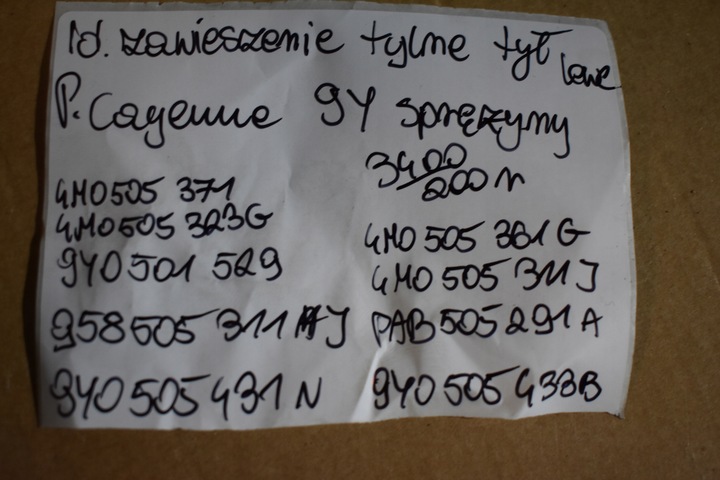 Id. zawieszenie tylne tył lewe
P. Cayenne 9Y sprężyny
3400/200 n
4M0505 371
4M0505 323G
9Y0501 529
958505 311 J
9Y0505 431 N
4M0 505 361 G
4M0 505 311 J
PAB 505 291 A
9Y0 505 433B